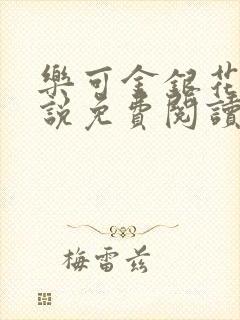 樂可金銀花
說免費閱讀
梅雷茲